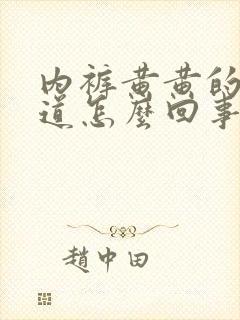 内裤黄黄的
道怎麼回事
趙中田